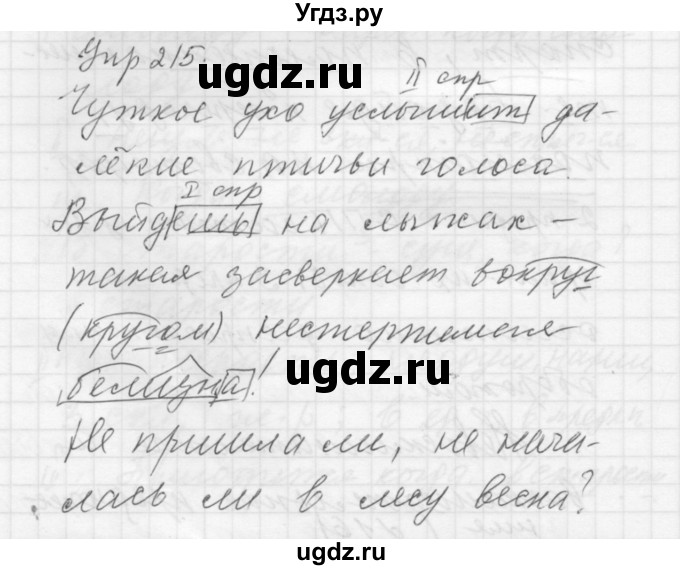 Угдз.ру
Упр 215.
ugdz.ru
II спр
Чуткое ухо услышит да-
лёкие птичьи голоса.
I спр
Выйдешь на лыжах –
такая засверкает вокруг
(кругом) нестерпимая
ugdz.ru
белизна!
Не пришла ли, не нача-
лась ли в лесу весна?
ugdz.ru